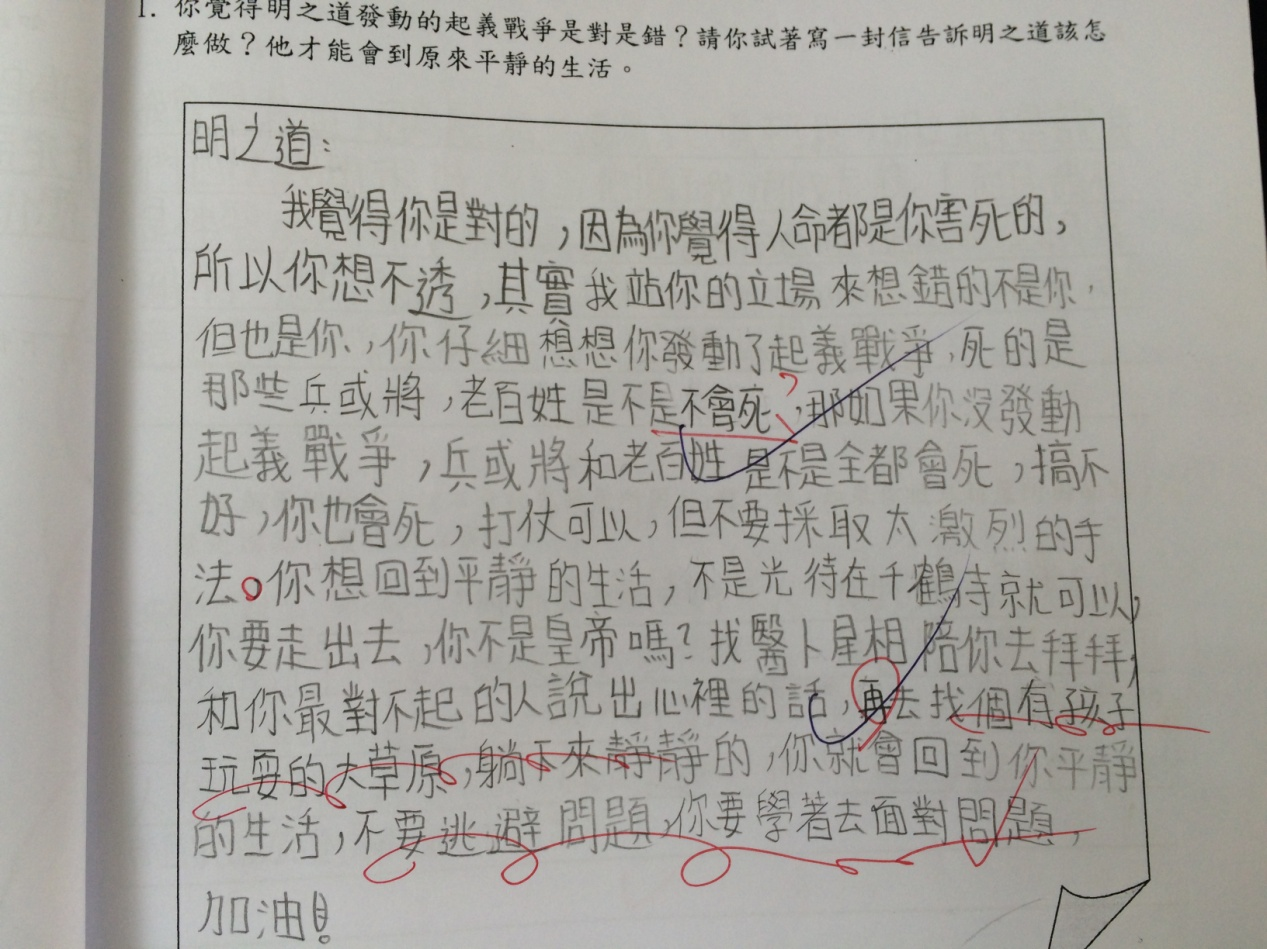 1. 你覺得明之道發動的起義戰爭是對是錯？請你試著寫一封信告訴明之道該怎
麼做？他才能會到原來平靜的生活。
明之道：
我覺得你是對的，因為你覺得人命都是你害死的，
所以你想不透，其實我站你的立場來想錯的不是你，
但也是你，你仔細想想你發動了起義戰爭，死的是
那些兵或將，老百姓是不是不會死，那如果你沒發動
?
起義戰爭，兵或將和老百姓是不是全都會死，搞不
好，你也會死，打仗可以，但不要採取太激烈的手
法。你想回到平靜的生活，不是光待在千鶴寺就可以，
你要走出去，你不是皇帝嗎？找醫卜星相陪你去拜拜，
和你最對不起的人說出心裡的話，再去找個有孩子
玩耍的大草原，躺下來靜靜的，你就會回到你平靜
的生活，不要逃避問題，你要學著去面對問題，
加油！